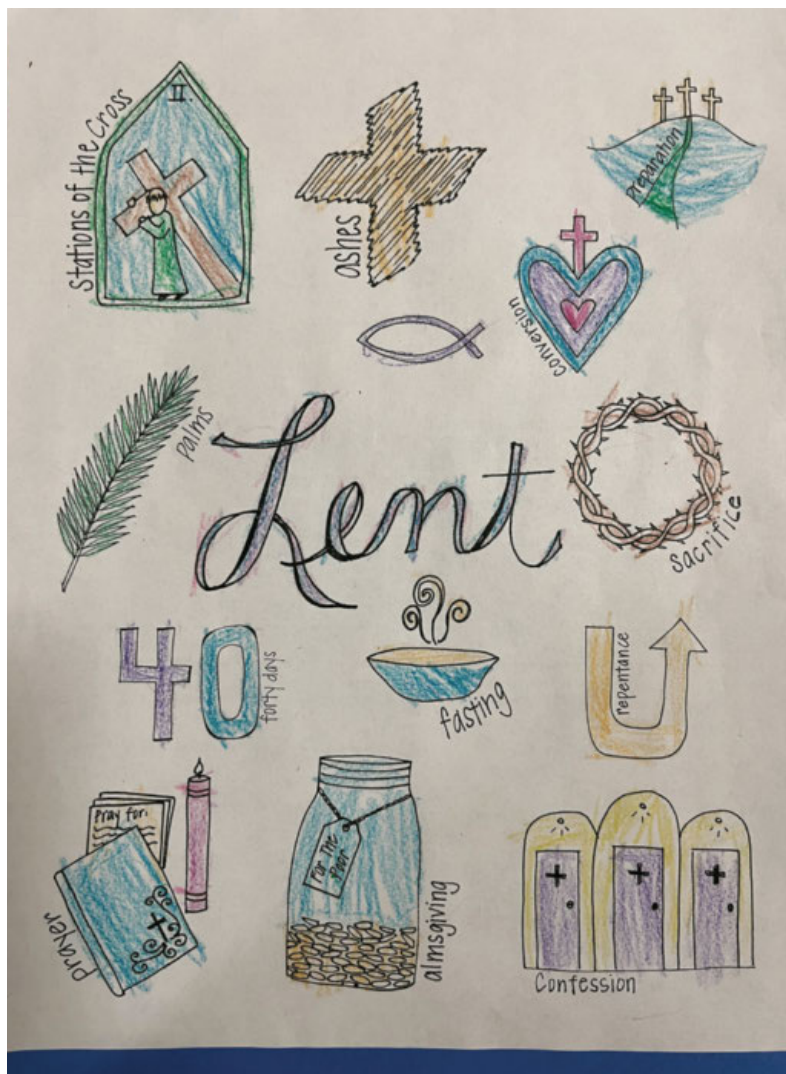 II.
Stations of the Cross
ashes
preparation
conversion
palms
Lent
sacrifice
40
forty days
fasting
repentance
Pray for:
prayer
For The
Poor
almsgiving
Confession